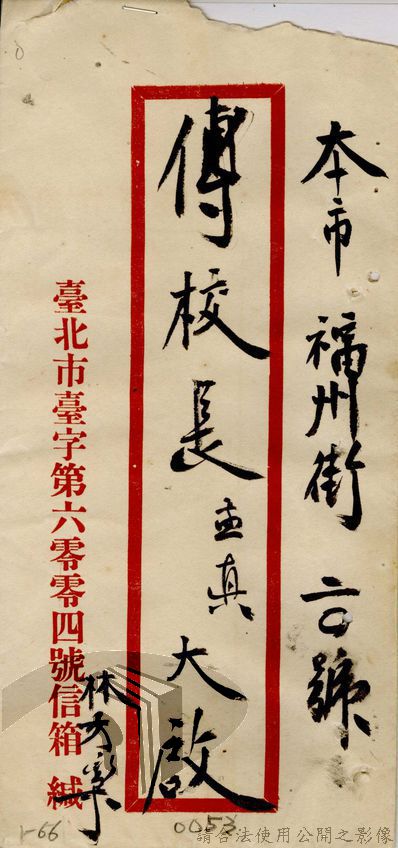 本市 福州街 二〇號
傅校長 孟真 大啟
臺北市臺字第六零零四號信箱 緘
林
1-66
0053
請合法使用公開之影像